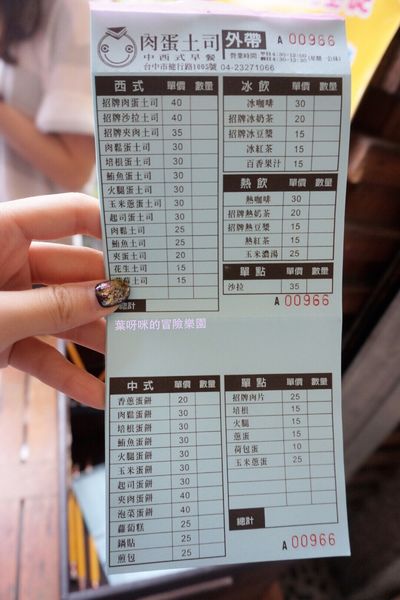 肉蛋土司 外帶 A 00966
中西式早餐 營業時間
台中市健行路1005號 04-23271066
西式 單價 數量
招牌肉蛋土司 40
招牌沙拉土司 40
招牌夾肉土司 35
肉鬆蛋土司 30
培根蛋土司 30
鮪魚蛋土司 30
火腿蛋土司 30
玉米蔥蛋土司 30
起司蛋土司 30
肉鬆土司 25
鮪魚土司 25
夾蛋土司 20
花生土司 15
土司 15
總計
冰飲 單價 數量
冰咖啡 30
招牌冰奶茶 20
招牌冰豆漿 15
冰紅茶 15
百香果汁 15
熱飲 單價 數量
熱咖啡 30
招牌熱奶茶 20
招牌熱豆漿 15
熱紅茶 15
玉米濃湯 25
單點 單價 數量
沙拉 35
A 00966
葉呀咪的冒險樂園
中式 單價 數量
香蔥蛋餅 20
肉鬆蛋餅 30
培根蛋餅 30
鮪魚蛋餅 30
火腿蛋餅 30
玉米蛋餅 30
起司蛋餅 30
夾肉蛋餅 40
泡菜蛋餅 40
蘿蔔糕 25
鍋貼 25
煎包 25
單點 單價 數量
招牌肉片 25
培根 15
火腿 15
蔥蛋 15
荷包蛋 10
玉米蔥蛋 25
總計
A 00966